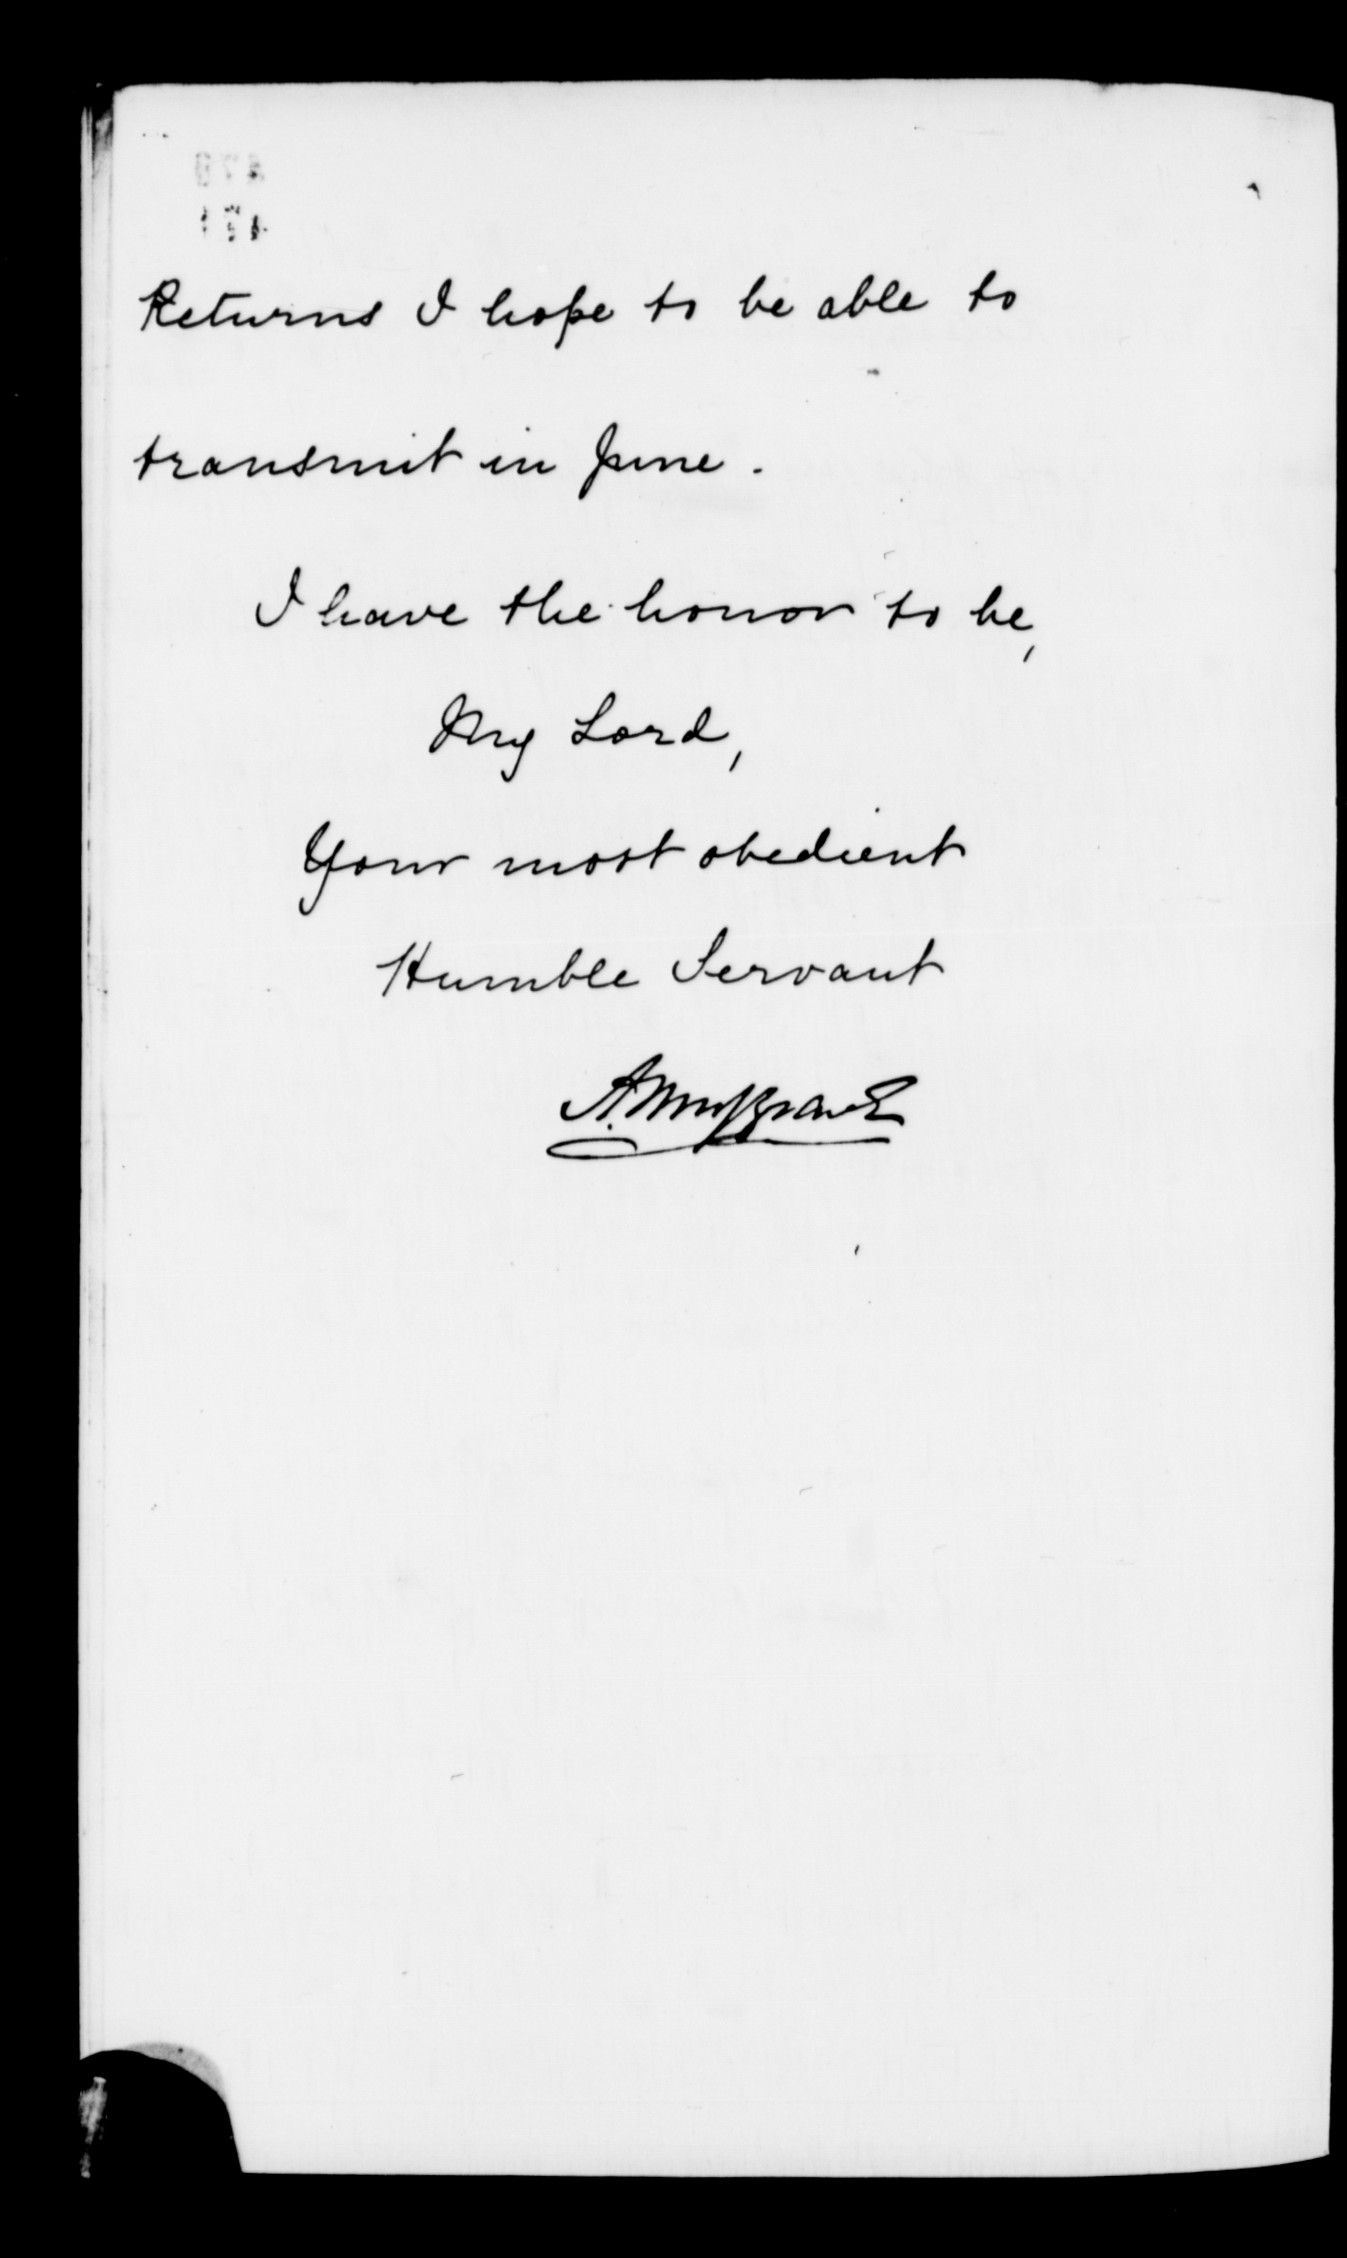 Returns I hope to be able to
transmit in June.
I have the honor to be,
My Lord,
Your most obedient
Humble Servant
A. Musgrave